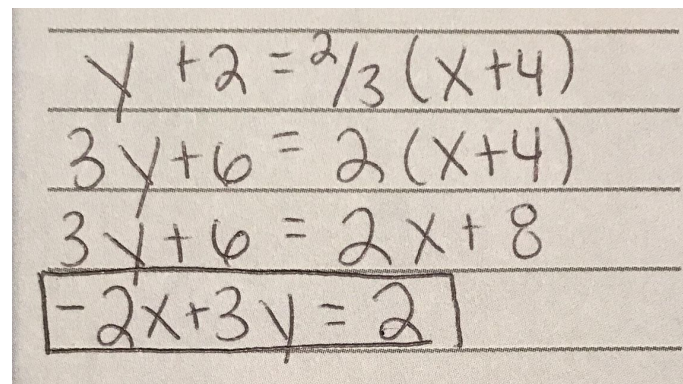 y + 2 = 2/3 (x+4)
3y+6 = 2(x+4)
3y+6 = 2x+8
-2x+3y = 2